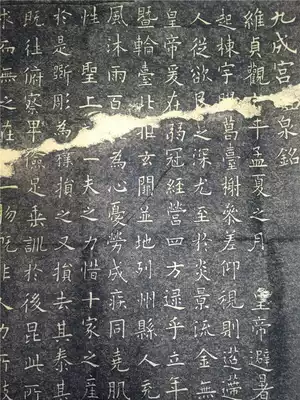 九成宮泉銘
維貞觀年孟夏之月 皇帝避暑
起棟宇葛臺榭參差仰視則迢遰
人從欲良之深尤至於炎景流金無
皇帝爰在弱冠經營四方逮乎立年
暨輪臺北拒玄闕並地列州縣人充
風沐雨百為心憂勞成疾同堯肌
性聖上一夫之力惜十家之產
於是斲彫為樸損之又損去其泰甚
既往俯察卑儉足垂訓於後昆此所
求而無之在一物既非人力所致